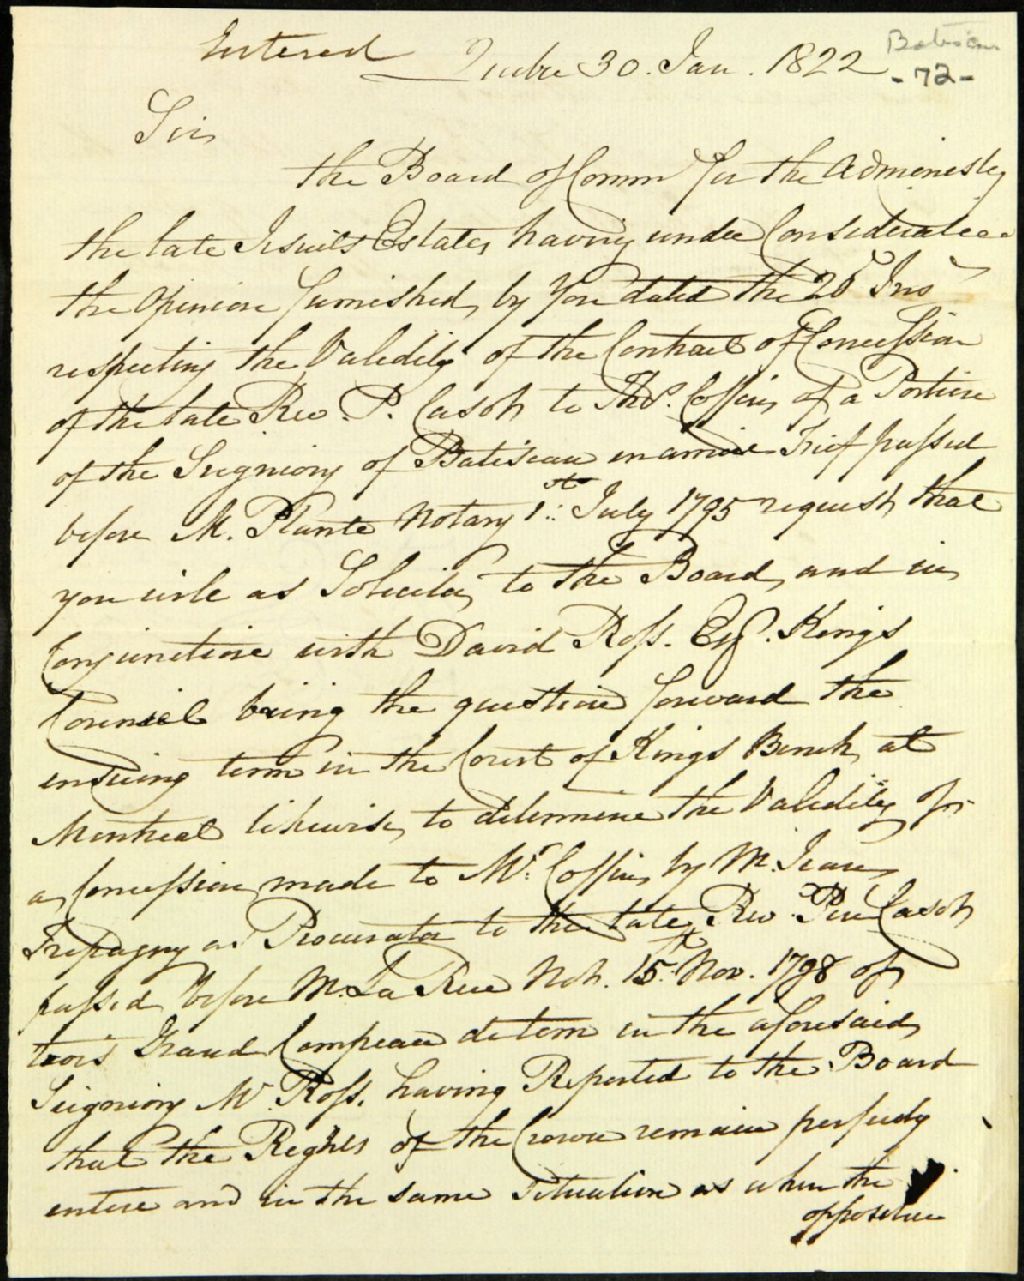 Entered Quebec 30. Jan. 1822
Batiscan
- 72 -
Sir
the Board of Comrs for the Administ. of
the late Jesuits Estates, having under Consideration
the Opinion furnished, by You dated the 28t Inst
respecting the Validity of the Contract of Concession
of the late Rev. P. Casot to Thos. Coffin, of a Portion
of the Seigniory of Batiscan en arriere Fief passed
before M. Plante Notary 1st July 1795 request that
you will as Solicitor to the Board, and in
Conjunction with David Ross. Esqr. Kings
Councel bring the question forward the
ensuing term in the Court of Kings Bench at
Montreal likewise, to determine the Validity of
a Concession made to Mr. Coffin, by M. Jean
Trepagny as Procurator to the late Rev. Pere Casot
passed before M. La Rue Not. 15th Nov. 1798 of
trois Grand Compeau de tern in the aforesaid
Seigniory Mr. Ross. having Reported to the Board
that the Rights of the Crown remain perfectly
entire and in the same situation as when the
opposition